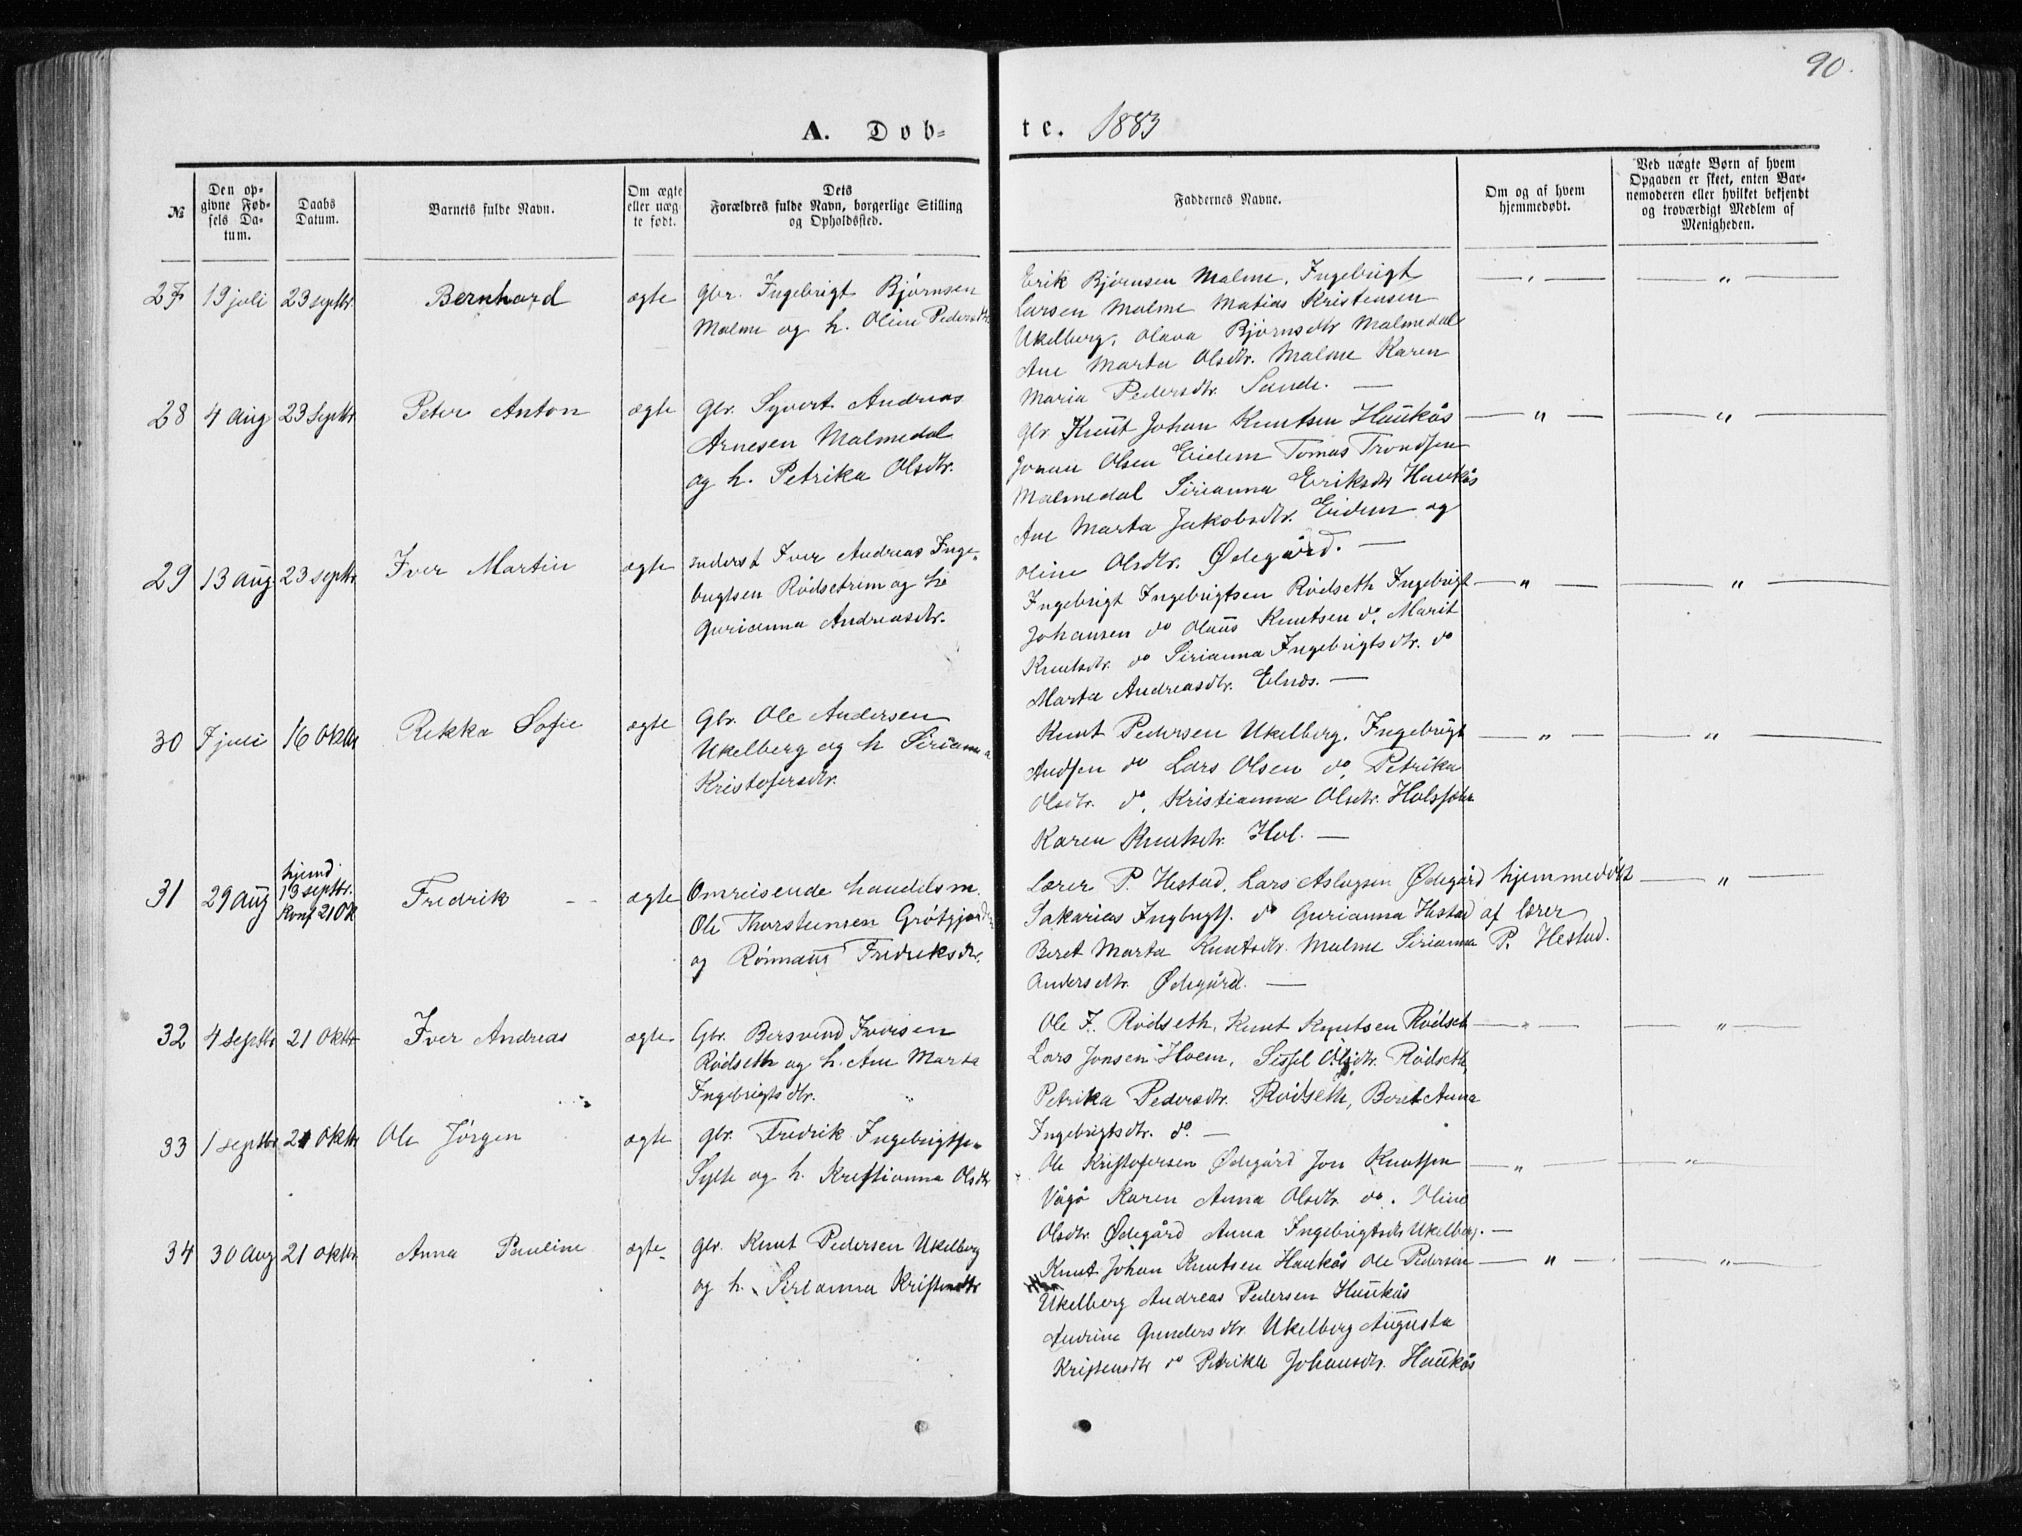 90.
A. Døb-te. 1883
№
Den opgivne Fødsels Datum.
Daabs Datum.
Barnets fulde Navn.
Om ægte eller uægte født.
Dets Forældres fulde Navn, borgerlige Stilling og Opholdssted.
Faddernes Navne.
Om og af hvem hjemmedøbt.
Ved uægte Børn af hvem Opgaven er skeet, enten Barnemoderen eller hvilket bekjendt og troværdigt Medlem af Menigheden.
27 19 juli 23 septbr. Bernhard ægte
Gbr. Ingebrigt Bjørnsen
Malme og h. Oline Pedersdtr.
Erik Bjørnsen Malme, Ingebrigt
Larsen Malme Matias Kristensen
Ukelberg, Olava Bjørnsdtr Malmedal
Ane Marta Olsdtr. Malme Karen
Maria Pedersdtr. Sande. —
— " — — " —
28 4 aug 23 septbr. Peter Anton ægte
Gbr. Syvert Andreas
Arnesen Malmedal
og h. Petrika Olsdtr.
Gbr Knut Johan Knutsen Haukås
Olsen Eidem Tomas Trondsen
Malmedal Sirianna Eriksdtr Haukås
Ane Marta Jakobsdtr. Eidem og
Oline Olsdtr. Ødegård. —
— " — — " —
29 13 aug 23 septbr. Iver Martin ægte
Inderst Iver Andreas Inge-
brigtsen Rødsetrim og h.
Gurianna Andreasdtr.
Ingebrigt Ingebrigtsen Rødseth Ingebrigt
Johansen do Olaus Knutsen do, Marit
Knutsdtr. do Sirianna Ingebrigtsdtr. do
Marta Andreasdtr. Elnæs. —
— " — — " —
30 7 juli 16 oktbr Rikka Sofie ægte
Gbr. Ole Andersen
Ukelberg og h Sirianna
Kristofersdtr.
Knut Pedersen Ukelberg, Ingebrigt
Andsen do Lars Olsen do, Petrika
Olsdtr. do, Kristianna Olsdtr.
Karen Knutsdtr. Hol. —
— " — — " —
31 29 aug hjemd 13 septbr. Konf 21 Ok Fredrik - - ægte
Omreisende handelsm.
Ole Thorsteinsen
og Fredriksdtr.
Lærer P. Hestad, Lars Aslagsen Ødegård
Sakarias Ingbrigts. do Gurianna Hestad
Beret Marta Knutsdtr. Malme Sirianna
Andersdtr. Ødegård. —
hjemmedøbt
af lærer
P. Hestad.
— " —
32 4 septbr 21 oktbr Iver Andreas ægte
Gbr. Bersvend Iversen
Rødseth og h. Ane Marta
Ingebrigtsdtr. "
Ole F. Rødseth, Knut Knutsen Rødset
Lars Jonsen Hoem, Sissel Olsdtr. Rødseth
Petrika Pedersdtr. Rødseth, Beret Anna
Ingebrigtsdtr. do. —
— " — — " —
33 1 septbr 21 oktbr Ole Jørgen ægte
Gbr. Fredrik Ingebrigtsen
Sylte og h. Kristianna Olsdtr
Ole Kristofersen Ødegård Jon Knutsen
Vågø Karen Anna Olsdtr do. Oline
Olsdtr Ødegård Anna Ingebrigtsdtr Ukelberg. —
— " — — " —
34 30 aug 21 oktbr Anna Pauline ægte
Gbr. Knut Pedersen Ukelberg
og h. Serianna Kristensdtr
Knut Johan Knutsen Haukås Ole Pedersen
Ukelberg Andreas Pedersen Haukås
Andrine Gundersdtr. Ukelberg Augusta
Kristensdtr do Petrika Johansdtr. Haukås
— " — — " —